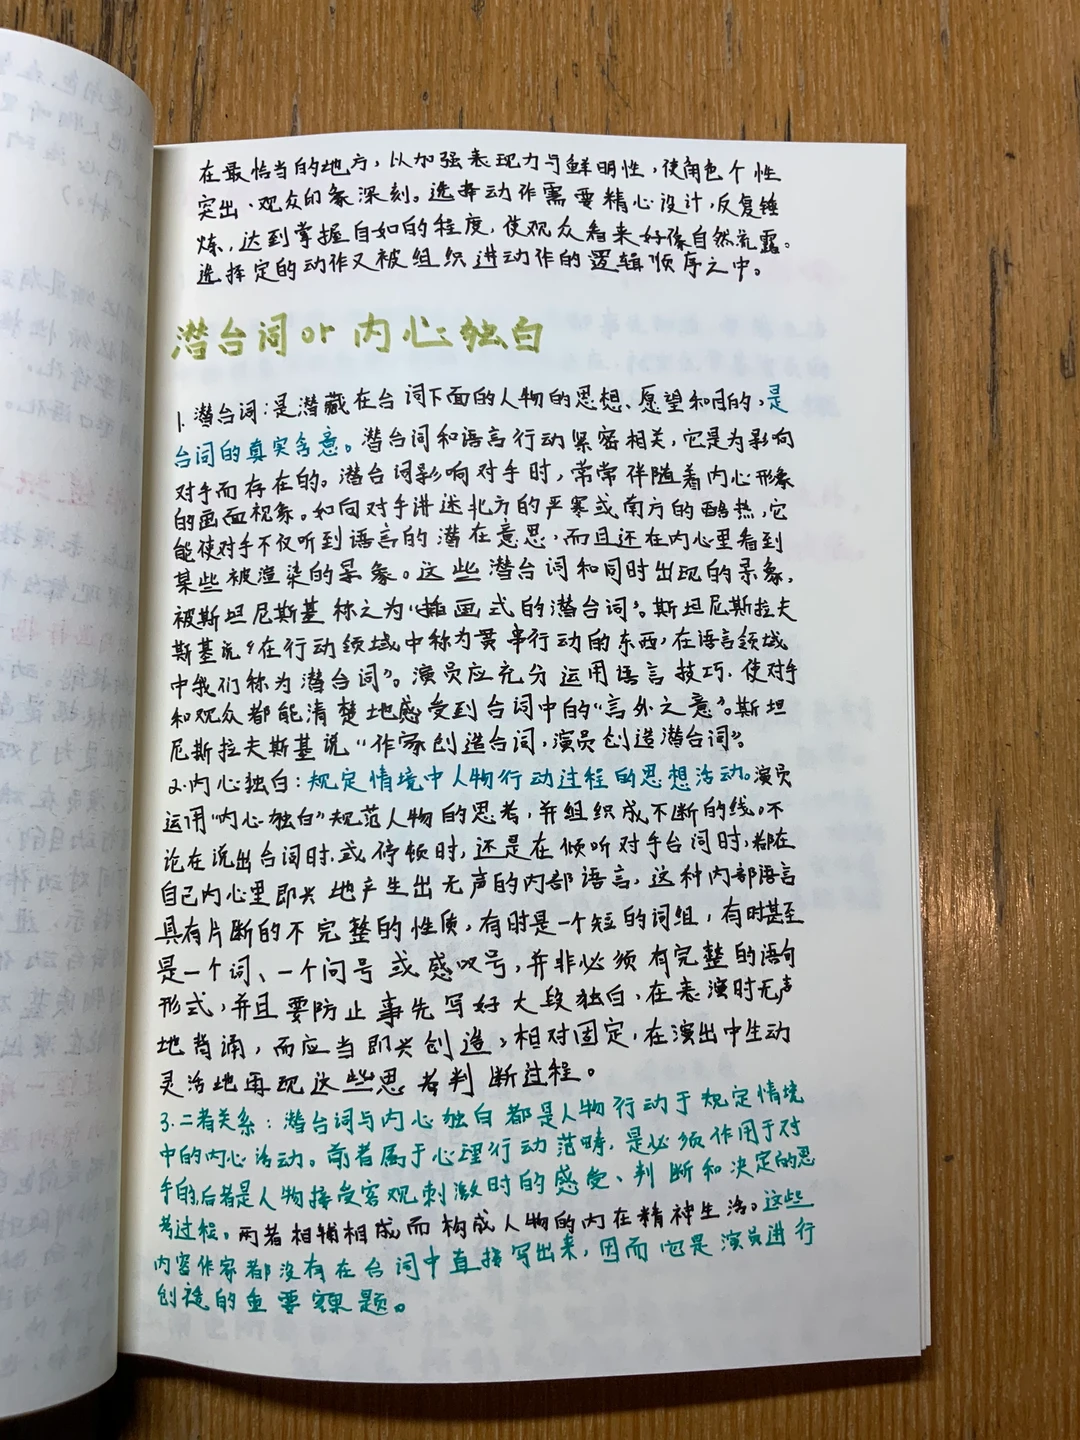 在最恰当的地方，以加强表现力与鲜明性，使角色个性
突出、观众印象深刻。选择动作需要精心设计，反复锤
炼，达到掌握自如的程度，使观众看来好像自然流露。
选择定的动作又被组织进动作的逻辑顺序之中。
潜台词or内心独白
1.潜台词：是潜藏在台词下面的人物的思想、愿望和目的，是
台词的真实含意。潜台词和语言行动紧密相关，它是为影响
对手而存在的。潜台词影响对手时，常常伴随着内心形象
的画面视象。如向对手讲述北方的严寒或南方的酷热，它
能使对手不仅听到语言的潜在意思，而且还在内心里看到
某些被渲染的景象。这些潜台词和同时出现的景象，
被斯坦尼斯基称之为“描画式的潜台词”。斯坦尼斯拉夫
斯基说“在行动领域中称为贯串行动的东西，在语言领域
中我们称为潜台词”。演员应充分运用语言技巧，使对手
和观众都能清楚地感受到台词中的“言外之意”。斯坦
尼斯拉夫斯基说“作家创造台词，演员创造潜台词”。
2.内心独白：规定情境中人物行动过程的思想活动。演员
运用“内心独白”规范人物的思考，并组织成不断的线。不
论在说出台词时，或停顿时，还是在倾听对手台词时，都在
自己内心里即兴地产生出无声的内部语言，这种内部语言
具有片断的不完整的性质，有时是一个短的词组，有时甚至
是一个词、一个问号或感叹号，并非必须有完整的语句
形式，并且要防止事先写好大段独白，在表演时无声
地背诵，而应当即兴创造，相对固定，在演出中生动
灵活地再现这些思考判断过程。
3.二者关系：潜台词与内心独白都是人物行动于规定情境
中的内心活动。前者属于心理行动范畴，是必须作用于对
手的，后者是人物接受客观刺激时的感受、判断和决定的思
考过程。两者相辅相成而构成人物的内在精神生活。这些
内容作家都没有在台词中直接写出来，因而它是演员进行
创造的重要课题。